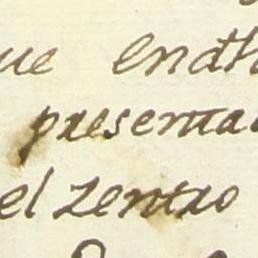 ue endh
presenta
el zentro